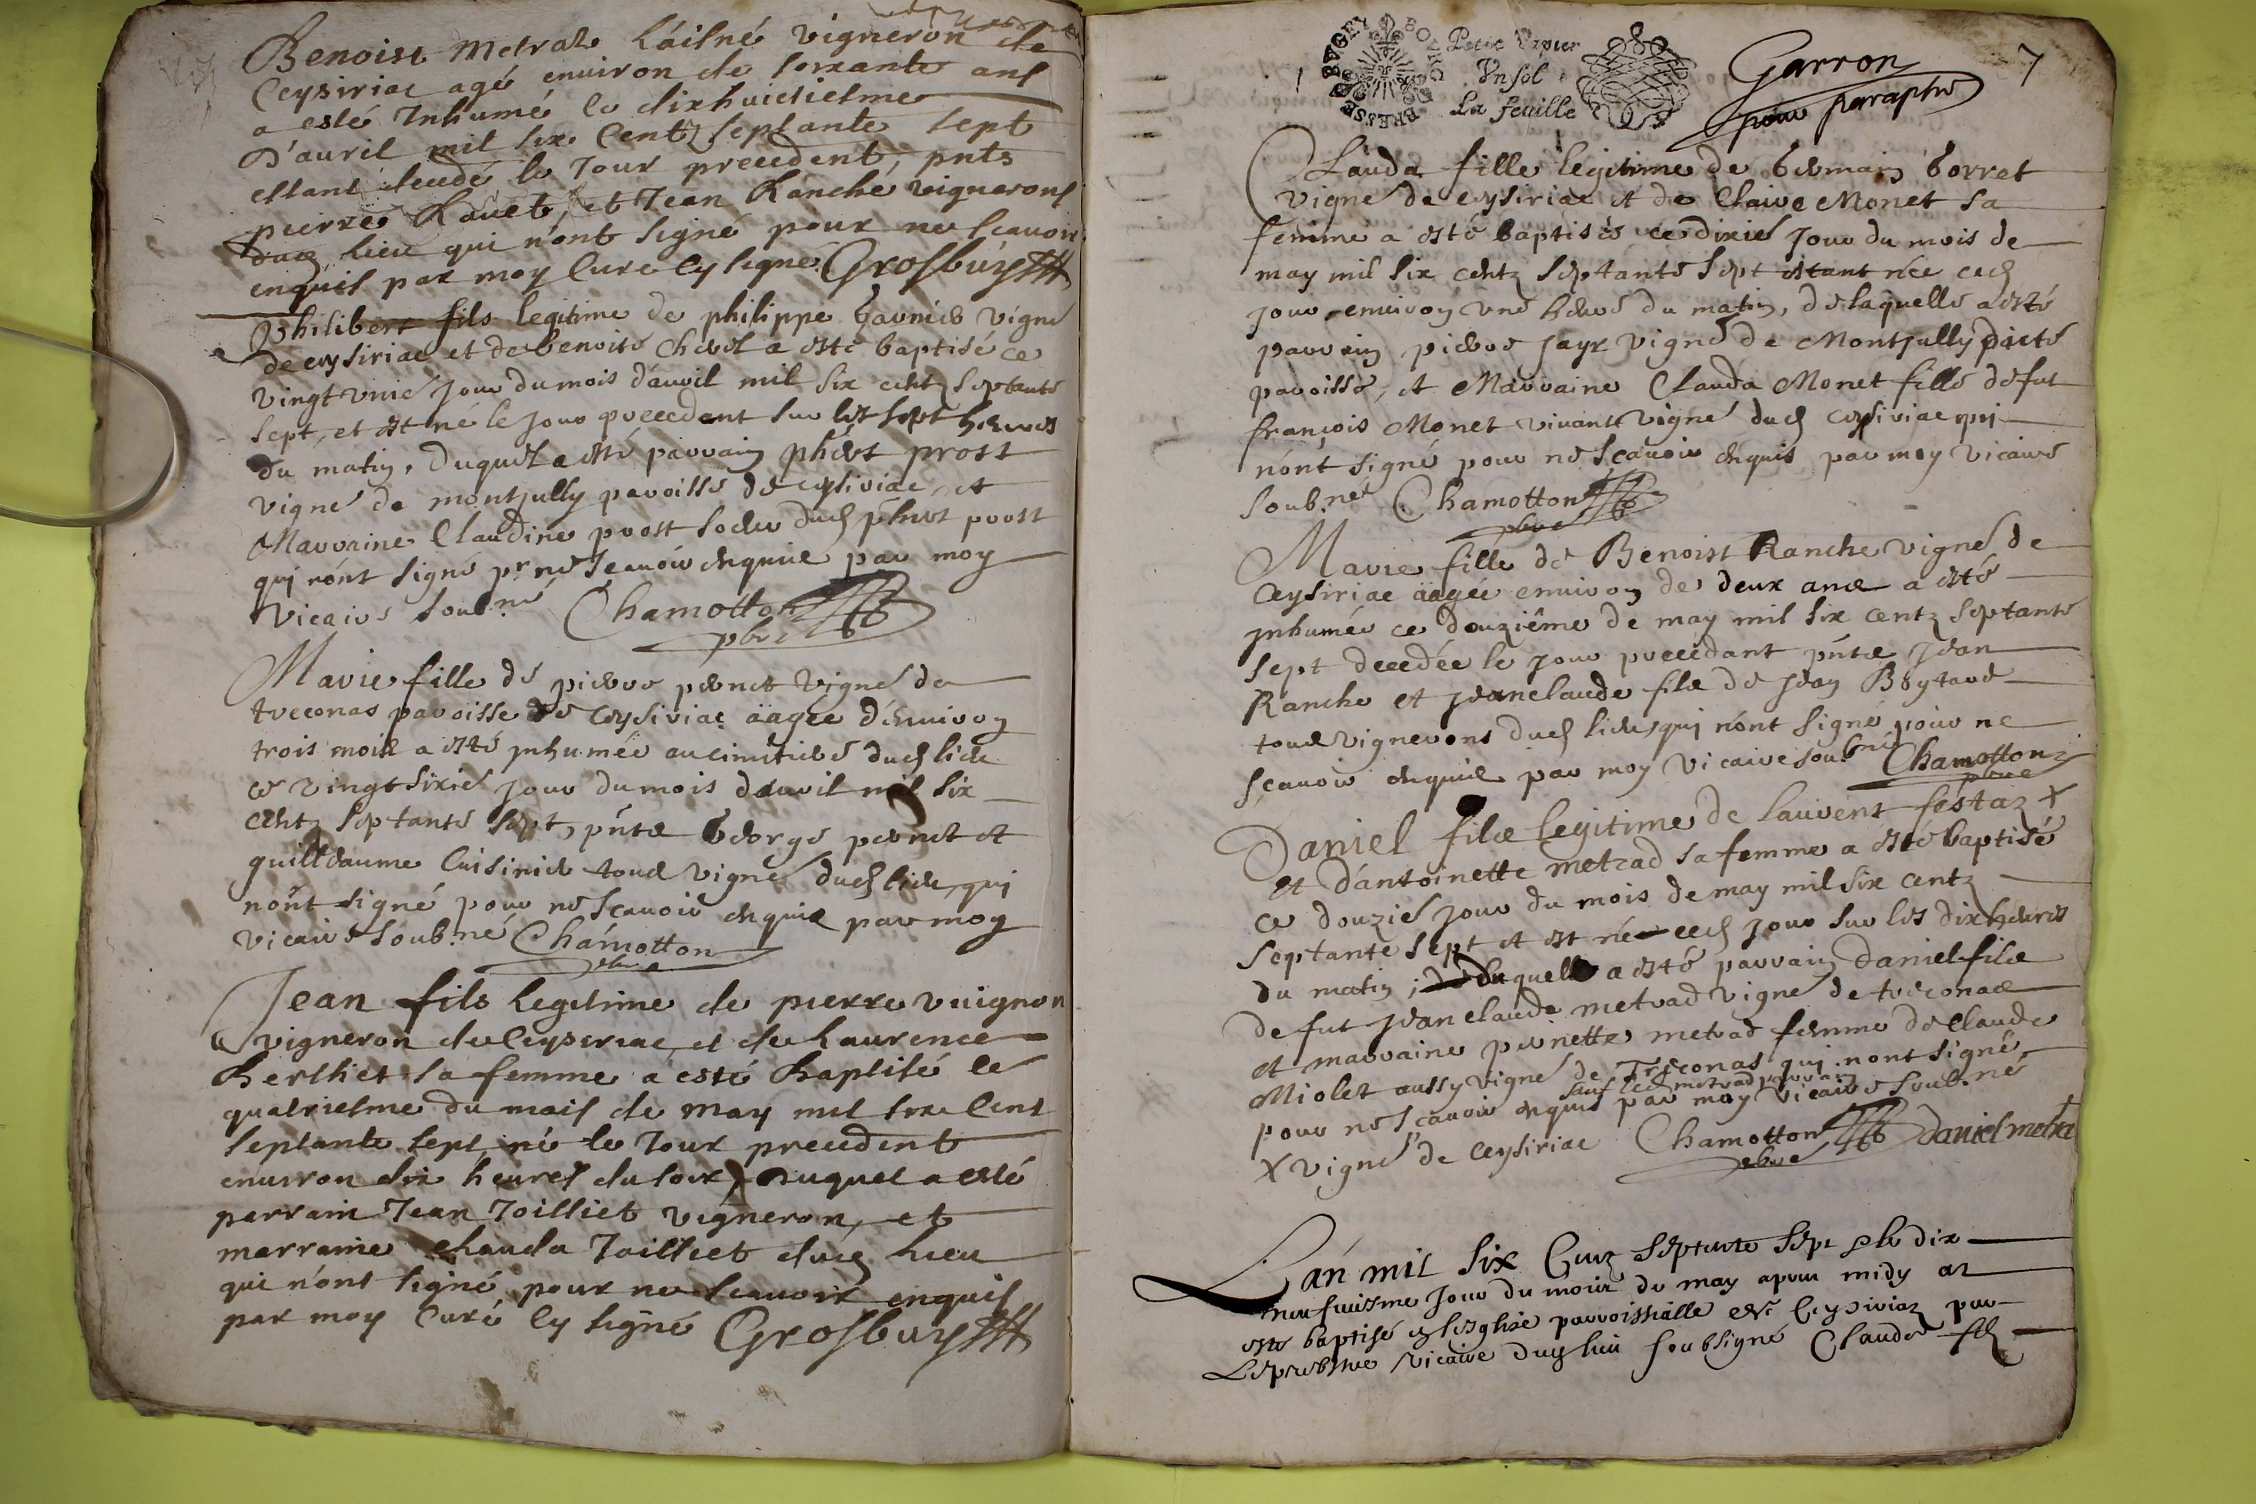 Benoist metral l'aisné vigneron de
Ceysiriac agé environ de soixante ans
a esté Inhumé le dixhuictiesme
D'auril mil six Centz septante sept
estant decedé le Jour precedent, pnts
pierre Rauet, et Jean Ranche vignerons
dud lieu qui n'ont signé pour ne scauoir
enquis par moy Curé Cy signé Grosbuys
Philibert fils legitime de philippe Garnier vigne
de ceysiriac et de benoite Chevrel a esté baptisé ce
vingt vnié jour du mois d'auril mil six centz septante
sept, et est né le jour precedent sur les sept heures
du matin, duquel a esté parrain phert prost
vigné de montjully paroisse de ceysiriac et
Marraine Claudine prost soeur dud phert prost
qui n'ont signé pr ne scauoir enquis par moy
vicaire soub.né Chamotton
pbre
Marie fille de pierre pernet vigné de
treconas paroisse de Ceysiriac aagée d'enuiron
trois mois a esté jnhumée au cimitiere dud lieu
ce vingt sixié jour du mois dauril mil six
centz septante sept, pnts George pernet et
guilleaume Cuisinier tous vigné dud lieu, qui
n'ont signé pour ne scauoir enquis par moy
vicaire soub.né Chamotton
pbre
Jean fils legitime de pierre vuignon
vigneron de Ceysiriac, et de Laurence
Berthet sa femme a esté Baptisé le
quatriesme du mois de may mil six Cent
septante sept, né le Jour precedent
enuiron dix heures du soir, Duquel a esté
parrain Jean Joilliet vigneron, et
marraine Clauda Joilliet dud lieu
qui n'ont signé pour ne scauoir enquis
par moy Curé Cy signé Grosbuys
BRESSE BVGEY BOURG
Petit Papier
Vn sol
La feuille
Garron
pour paraphe
7
Clauda fille legitime de Germain Gorret
vigné de ceysiriac et de Claire Monet sa
femme a esté baptisée ce dixié jour du mois de
may mil six centz septante sept estant née ced
jour enuiron vne heure du matin, de laquelle a esté
parrain pierre jayr vigné de Montjully dicte
paroisse, et Marraine Clauda Monet fille de fut
françois Monet viuant vigné dud ceysiriac qui
n'ont signé pour ne scauoir enquis par moy vicaire
soub.né Chamotton
pbre
Marie fille de Benoist Ranche vigné de
Ceysiriac aagée enuiron de deux ans a esté
jnhumée ce douziême de may mil six centz septante
sept decedée le jour precedant pnts jean
Ranche et jeanclaude fils de jean
tous vignerons dud lieu, qui n'ont signé pour ne
scauoir enquis par moy vicaire soub.né Chamotton
pbre
Daniel fils legitime de laurent festaz X
et d'antoinette metrad sa femme a esté baptisé
ce douzié jour du mois de may mil six centz
septante sept et est né ced jour sur les dix heures
du matin; duquelle a esté parrain daniel fils
de fut jeanclaude metrad vigné de treconas
et marraine pernette metrad femme de Claude
Miolet aussy vigné de Treconas qui n'ont signé
sauf led metrad parrain
pour ne scauoir enquis par moy vicaire soub.né
X vigné de Ceysiriac Chamotton daniel metra
pbre
L'an mil six Centz septente sept et le dix
neufuiesme jour du mois de may apres midy at
esté baptisé en lesglise parroissialle de Ceysiriaz par
Le prebstre vicaire dud lieu soubsigné Claude fils